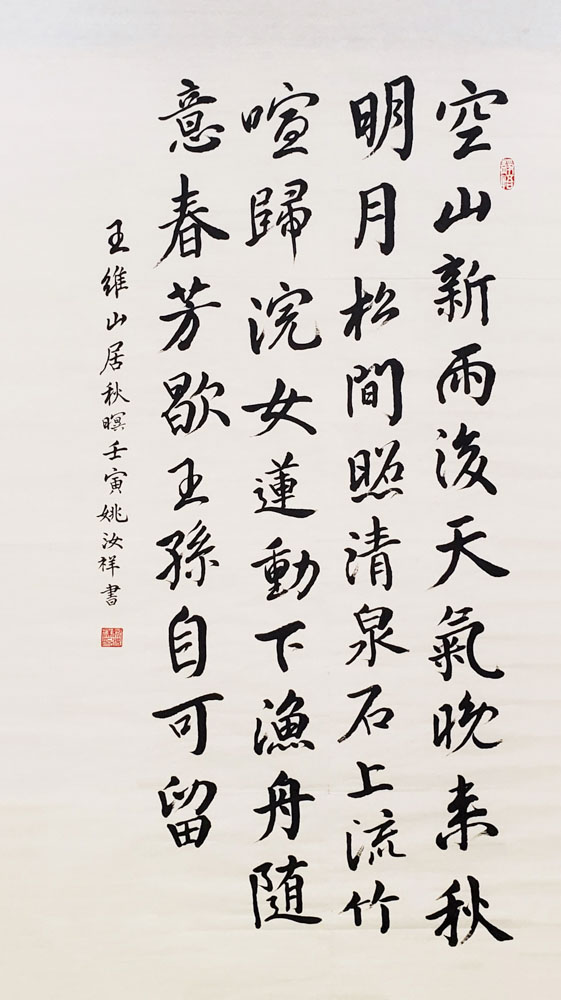 空山新雨後天氣晚来秋
明月松間照清泉石上流竹
喧歸浣女蓮動下漁舟隨
意春芳歇王孫自可留
王維山居秋暝壬寅姚汝祥書